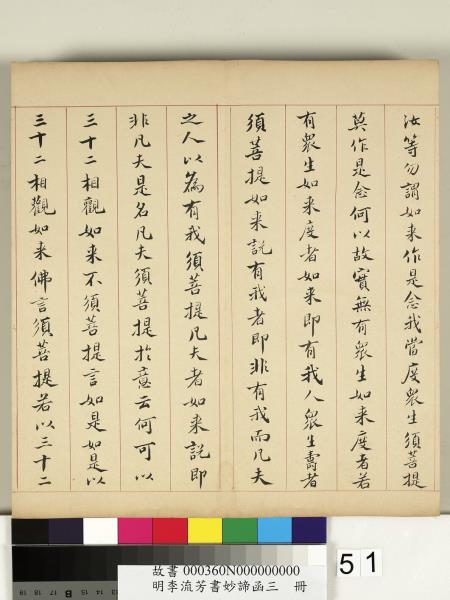 汝等勿謂如来作是念我當度衆生須菩提
莫作是念何以故實無有衆生如来度者若
有衆生如来度者如来即有我人衆生壽者
須菩提如来説有我者即非有我而凡夫
之人以為有我須菩提凡夫者如来説即
非凡夫是名凡夫須菩提扵意云何可以
三十二相觀如来不須菩提言如是如是以
三十二相觀如来佛言須菩提若以三十二
故書 000360N000000000
明李流芳書妙諦函三 冊
51